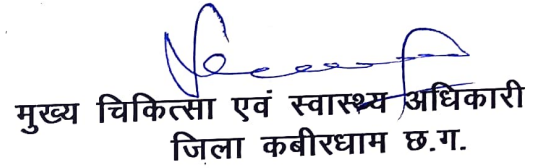 मुख्य चिकित्सा एवं स्वास्थ्य अधिकारी
जिला कबीरधाम छ.ग.